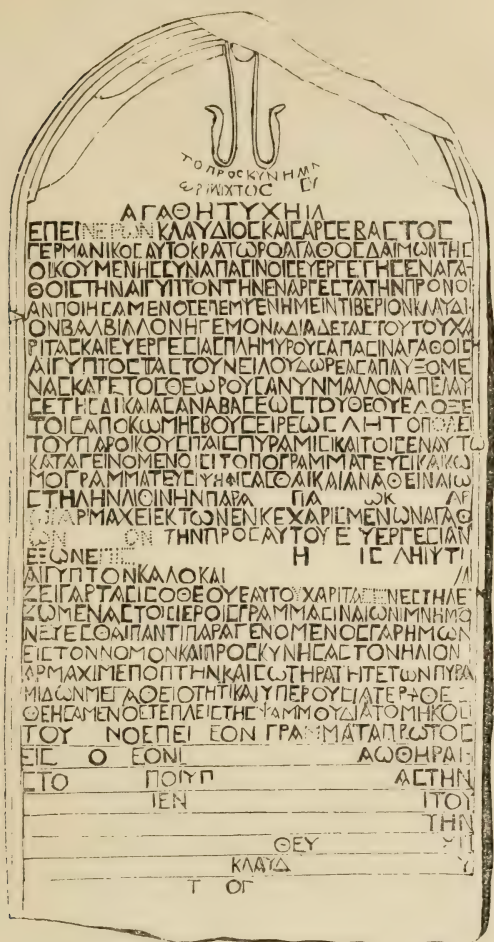 ΤΟΠΡΟΣΚΥΝΗΜΑ
ΑΓΑΘΗΤΥΧΗΙ
ΕΠΕΙΝΕΡΩΝΚΛΑΥΔΙΟΣΚΑΙΣΑΡΣΕΒΑΣΤΟΣ
ΓΕΡΜΑΝΙΚΟΣΑΥΤΟΚΡΑΤΩΡΟΑΓΑΘΟΣΔΑΙΜΩΝΤΗΣ
ΟΙΚΟΥΜΕΝΗΣΣΥΝΑΠΑΣΙΝΟΙΣΕΥΕΡΓΕΤΗΣΕΝΑΓΑ
ΘΟΙΣΤΗΝΑΙΓΥΠΤΟΝΤΗΝΕΝΑΡΓΕΣΤΑΤΗΝΠΡΟΝΟΙ
ΑΝΠΟΙΗΣΑΜΕΝΟΣΕΠΕΜΨΕΝΗΜΕΙΝΤΙΒΕΡΙΟΝΚΛΑΥΔΙ
ΟΝΒΑΛΒΙΛΛΟΝΗΓΕΜΟΝΑΔΙΑΔΕΤΑΣΤΟΥΤΟΥΧΑ
ΡΙΤΑΣΚΑΙΕΥΕΡΓΕΣΙΑΣΠΛΗΜΥΡΟΥΣΑΠΑΣΙΝΑΓΑΘΟΙΣ
ΑΙΓΥΠΤΟΣΤΑΣΤΟΥΝΕΙΛΟΥΔΩΡΕΑΣΕΠΑΥΞΟΜΕ
ΝΑΣΚΑΤΕΤΟΣΘΕΩΡΟΥΣΑΝΥΝΜΑΛΛΟΝΑΠΕΛΑΥ
ΣΕΤΗΣΔΙΚΑΙΑΣΑΝΑΒΑΣΕΩΣΤΟΥΘΕΟΥΕΔΟΞΕ
ΤΟΙΣΑΠΟΚΩΜΗΣΒΟΥΣΕΙΡΕΩΣΛΗΤΟΠΟΛΕΙ
ΤΟΥΠΑΡΟΙΚΟΥΣΙΤΑΙΣΠΥΡΑΜΙΣΙΚΑΙΤΟΙΣΕΝΑΥΤΩ
ΚΑΤΑΓΕΙΝΟΜΕΝΟΙΣΙΤΟΠΟΓΡΑΜΜΑΤΕΥΣΙΚΑΙΚΩ
ΜΟΓΡΑΜΜΑΤΕΥΣΙΨΗΦΙΣΑΣΘΑΙΚΑΙΑΝΑΘΕΙΝΑΙΩ
ΣΤΗΛΗΝΛΙΘΙΝΗΝΠΑΡΑ ΓΙΑ ΩΚ ΑΡ
ΑΡΜΑΧΕΙΕΚΤΩΝΕΝΚΕΧΑΡΙΣΜΕΝΩΝΑΓΑΘ
ΩΝ ΟΝ ΤΗΝΠΡΟΣΑΥΤΟΥΕΥΕΡΓΕΣΙΑΝ
ΕΞΩΝΕΠΙΣ Η ΙΣ ΛΗΙΥΤΙ
ΑΙΓΥΠΤΟΝΚΑΛΟΚΑΙ
ΖΕΙΓΑΡΤΑΣΙΣΟΘΕΟΥΣΑΥΤΟΥΧΑΡΙΤΑΣΕΝΕΣΤΗΛΕ
ΖΩΜΕΝΑΣΤΟΙΣΙΕΡΟΙΣΓΡΑΜΜΑΣΙΝΑΙΩΝΙΜΝΗΜΟ
ΝΕΥΕΣΘΑΙΠΑΝΤΙΠΑΡΑΓΕΝΟΜΕΝΟΣΓΑΡΗΜΩΝ
ΕΙΣΤΟΝΝΟΜΟΝΚΑΙΠΡΟΣΚΥΝΗΣΑΣΤΟΝΗΛΙΟΝ
ΑΡΜΑΧΙΜΕΠΟΠΤΗΝΚΑΙΣΩΤΗΡΑΤΗΤΕΤΩΝΠΥΡΑ
ΜΙΔΩΝΜΕΓΑΘΕΙΟΤΗΤΙΚΑΙΥΠΕΡΟΥΣΙΑΤΕΡΦΘΕ
ΘΕΗΣΑΜΕΝΟΣΤΕΠΛΕΙΣΤΗΣΨΑΜΜΟΥΔΙΑΤΟΜΗΚΟΣ
ΤΟΥ ΝΟΕΠΕΙ ΕΟΝ ΓΡΑΜΜΑΤΑΠΡΩΤΟΣ
ΕΙΣ Ο ΕΟΝΙ ΑΩΘΗΡΑΙ
ΣΤΟ ΠΟΙΥΠ ΑΣΤΗΝ
ΙΕΝ ΙΤΟΥ
ΤΗΝ
ΘΕΥ
ΚΛΑΥΔ
Τ ΟΓ